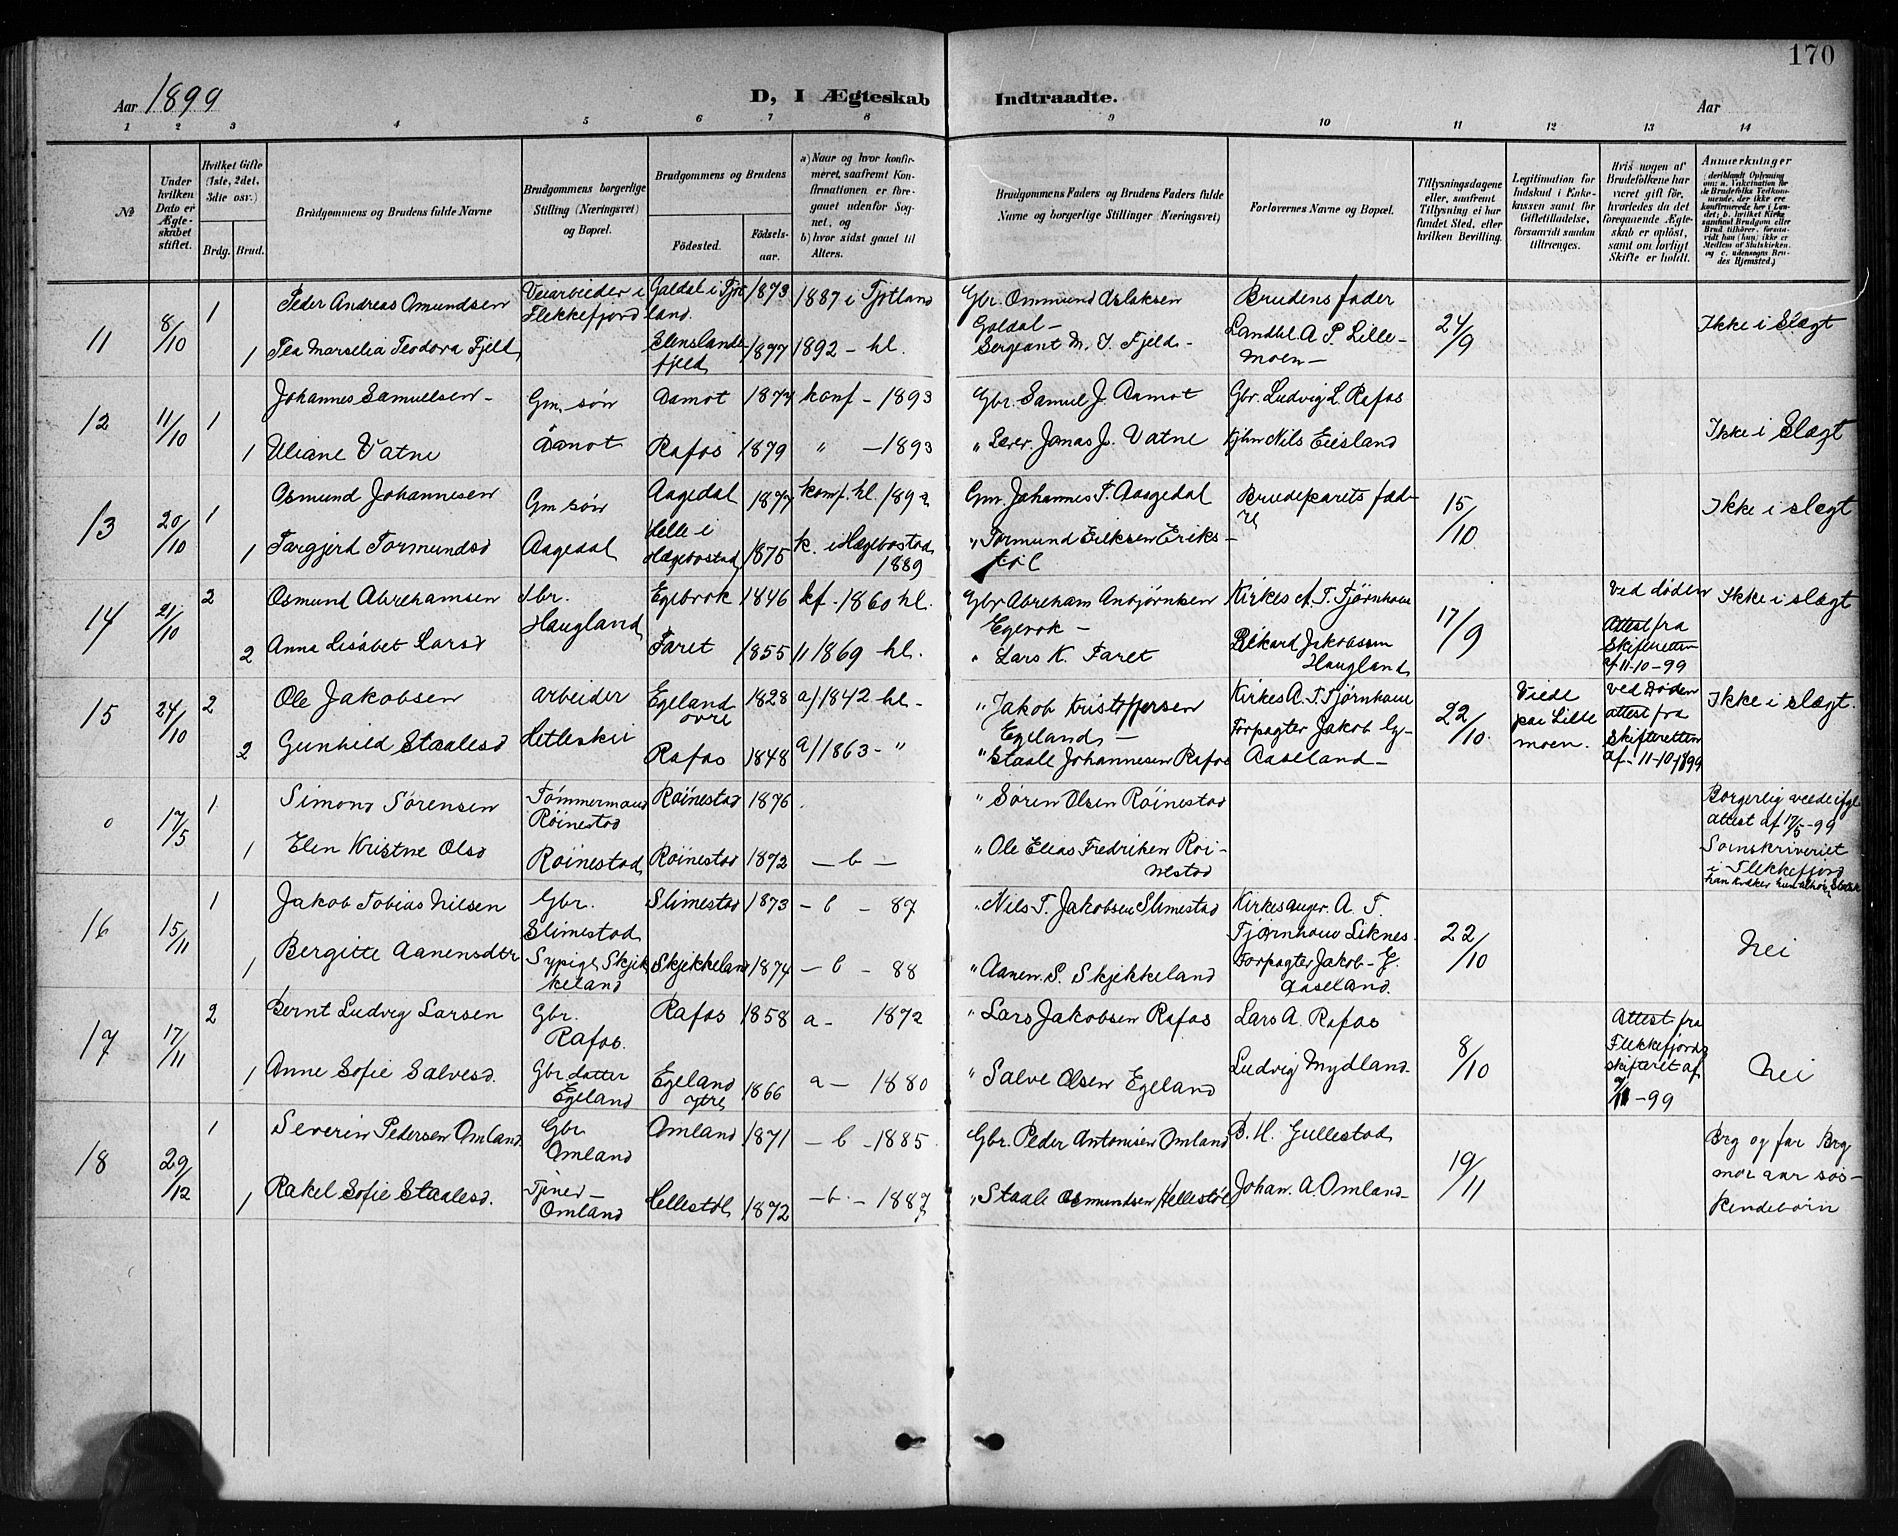 170
Aar 1899
D, I Ægteskab Indtraadte.
Aar
1 2 3 4 5 6 7 8 9 10 11 12 13 14
№
Under hvilken Dato er Ægteskabet stiftet.
Hvilket Gifte (1ste, 2det, 3die osv.)
Brdg. Brud.
Brudgommens og Brudens fulde Navne
Brudgommens borgerlige Stilling (Næringsvei) og Bopæl.
Brudgommens og Brudens
Fødested. Fødselsaar.
a) Naar og hvor konfirmeret, saafremt Konfirmationen er foregaaet udenfor Sognet, og
b) hvor sidst gaaet til Alters.
Brudgommens Faders og Brudens Faders fulde Navne og borgerlige Stillinger (Næringsvei)
Forlovernes Navne og Bopæl.
Tillysningsdagene eller, saafremt Tillysning ei har fundet Sted, efter hvilken Bevilling.
Legitimation for Indskud i Enkekassen samt for Giftetilladelse, forsaavidt saadan tiltrænges.
Hvis nogen af Brudefolkene har været gift før, hvorledes da det foregaaende Ægteskab er opløst, samt om lovligt Skifte er holdt.
Anmerkninger (deriblandt Oplysning om: a. Vakcination for de Brudefolks Vedkommende, der ikke ere konfirmerede her i Landet; b. hvilket Kirkesamfund Brudgom eller Brud tilhører, forsaavidt han (hun) ikke er Medlem af Statskirken, og c. udensogns Brudes Hjemsted.)
11 8/10 1 Peder Andreas Omundsen Veiarbeider i Flekkefjord Galdal i Fjotland. 1873 1887 i Fjotland Gbr. Ommund Aslaksen Galdal – Brudens fader 24/9 Ikke i Slægt
1 Tea Marselia Teodora Fjeld Elenslandsfjeld 1877 1892 – hl. Sergeant M. I. Fjeld – Landhl. A P. Lillemoen –
12 11/10 1 Johannes Samuelsen – Gm. søn Aamot Aamot 1877 konf – 1893 Gbr. Samuel J. Aamot Gbr. Ludvig L. Rafos Ikke i Slægt
1 Uliane Vatne Rafos 1879 " – 1893 " Lærer. Jonas J. Vatne Kjhn Nils Eiesland
13 20/10 1 Osmund Johannesen Gm søn Aagedal Aagedal 1877 konf. hl. 1892 Gm. Johannes T. Aagedal Brudeparets fædre 15/10 Ikke i slægt
1 Targjerd Tormundsd Helle i Hægebostad 1875 k. i Hægebostad 1889 " Tormund Eriksen Eriks–
14 21/10 2 Osmund Abrehamsen Gbr. Haugland Egebrok 1846 kf – 1860 hl. Gbr Abreham Asbjørnsen Egebrok – Kirkes A. T. Tjørnhom 17/9 ved døden Attest fra Skifteretten af 11-10-99 Ikke i slægt
2 Anna Lisabet Larsd Faret 1855 " 1869 hl. " Lars K. Faret Rikard Jakobsen Haugland
15 24/10 2 Ole Jakobsen arbeider Egeland øvre 1828 a/ 1842 hl – " Jakob Kristoffersen Egeland – Kirkes A. T. Tjørnhom 22/10 Viede paa Lillemoen. ved Døden attest fra Skifteretten af 11-10-1899 Ikke i slægt.
2 Gunhild Staalesd Rafos 1848 a/ 1863 – " " Staale Johannesen Rafos Forpagter Jakob Ey– Aaseland –
0 17/5 1 Simond Sørensen Tømmermand Røinestad Røinestad 1876 " Søren Olsen Røinestad Borgerlig viede ifølge attest af 17/5-99 Sorenskriveriet i Flekkefjord
1 Elen Kristne Olsd Røinestad Røinestad 1872 – b – " Ole Elias Fredriken Roinestad
16 15/11 1 Jakob Tobias Nilsen Gbr. Slimestad Slimestad 1873 – b – 87 " Nils T. Jakobsen Slimestad Kirkesanger. A. T. Tjørnhom Liknes 22/10 Nei
1 Bergitte Aanensdtr Sypige Skjikkeland Skjikkeland 1874 – b – 88 " Aanen. S. Skjekkeland Forpagter Jakob – Ey. Aaseland.
17 17/11 2 Bernt Ludvig Larsen Gbr. Rafos. Rafos 1858 a – 1872 " Lars Jakobsen Rafos Lars A. Rafos 8/10 Attest fra Flekkefjords skifteret af 9/11-99 Nei
1 Anne Sofie Salvesd. Gbr datter Egeland Egeland ytre 1866 a – 1880 " Salve Olsen Egeland Ludvig Mydland.
18 29/12 1 Severin Pedersen Omland Gbr Omland Omland 1871 – b – 1885. Gbr. Peder Antonisen Omland B. H. Gullestad 19/11 Brg og far Brg mor aar søskendebørn
1 Rakel Sofie Staalesd. Tjener – Omland Hellestøl 1872 – b. – 1887 " Staale Osmundsen Hellestøl Johan. A Omland –